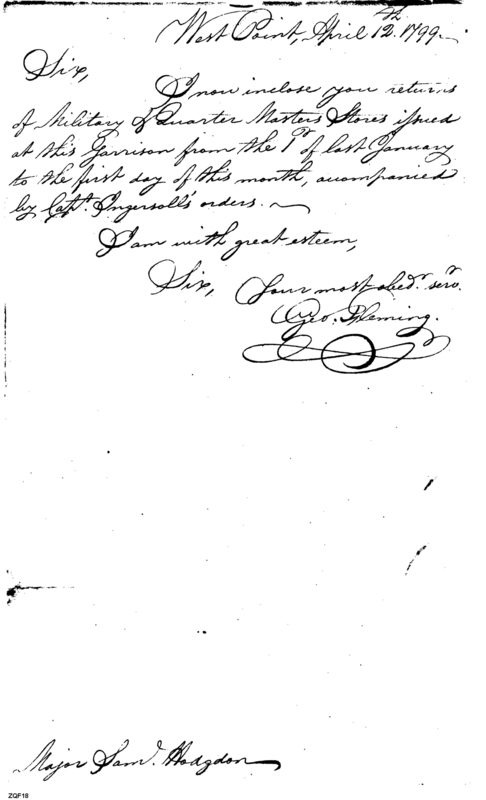 West Point, April 12th. 1799.
Sir,
I now inclose you returns
of Military & Quarter Masters Stores issued
at this Garrison from the 1st of last January
to the first day of this month, accompanied
by Capt. Ingersoll's orders.
I am with great esteem,
Sir, Your most obedt. servt.
Geo. Fleming.
Major Saml. Hodgdon
ZQF18